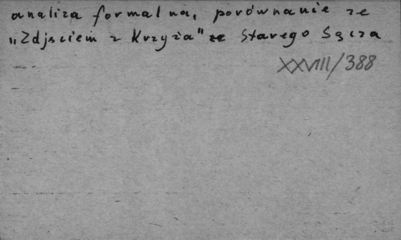 analiza formalna, porównanie ze
"Zdjęciem z Krzyża" ze Starego Sącza
XXVIII/388